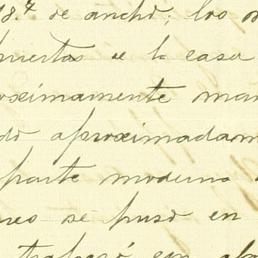 18.4 de ancho; los
puertas de la casa
oximamente mar
do aproximadam
parte moderna
nes se puso en
trabajó en